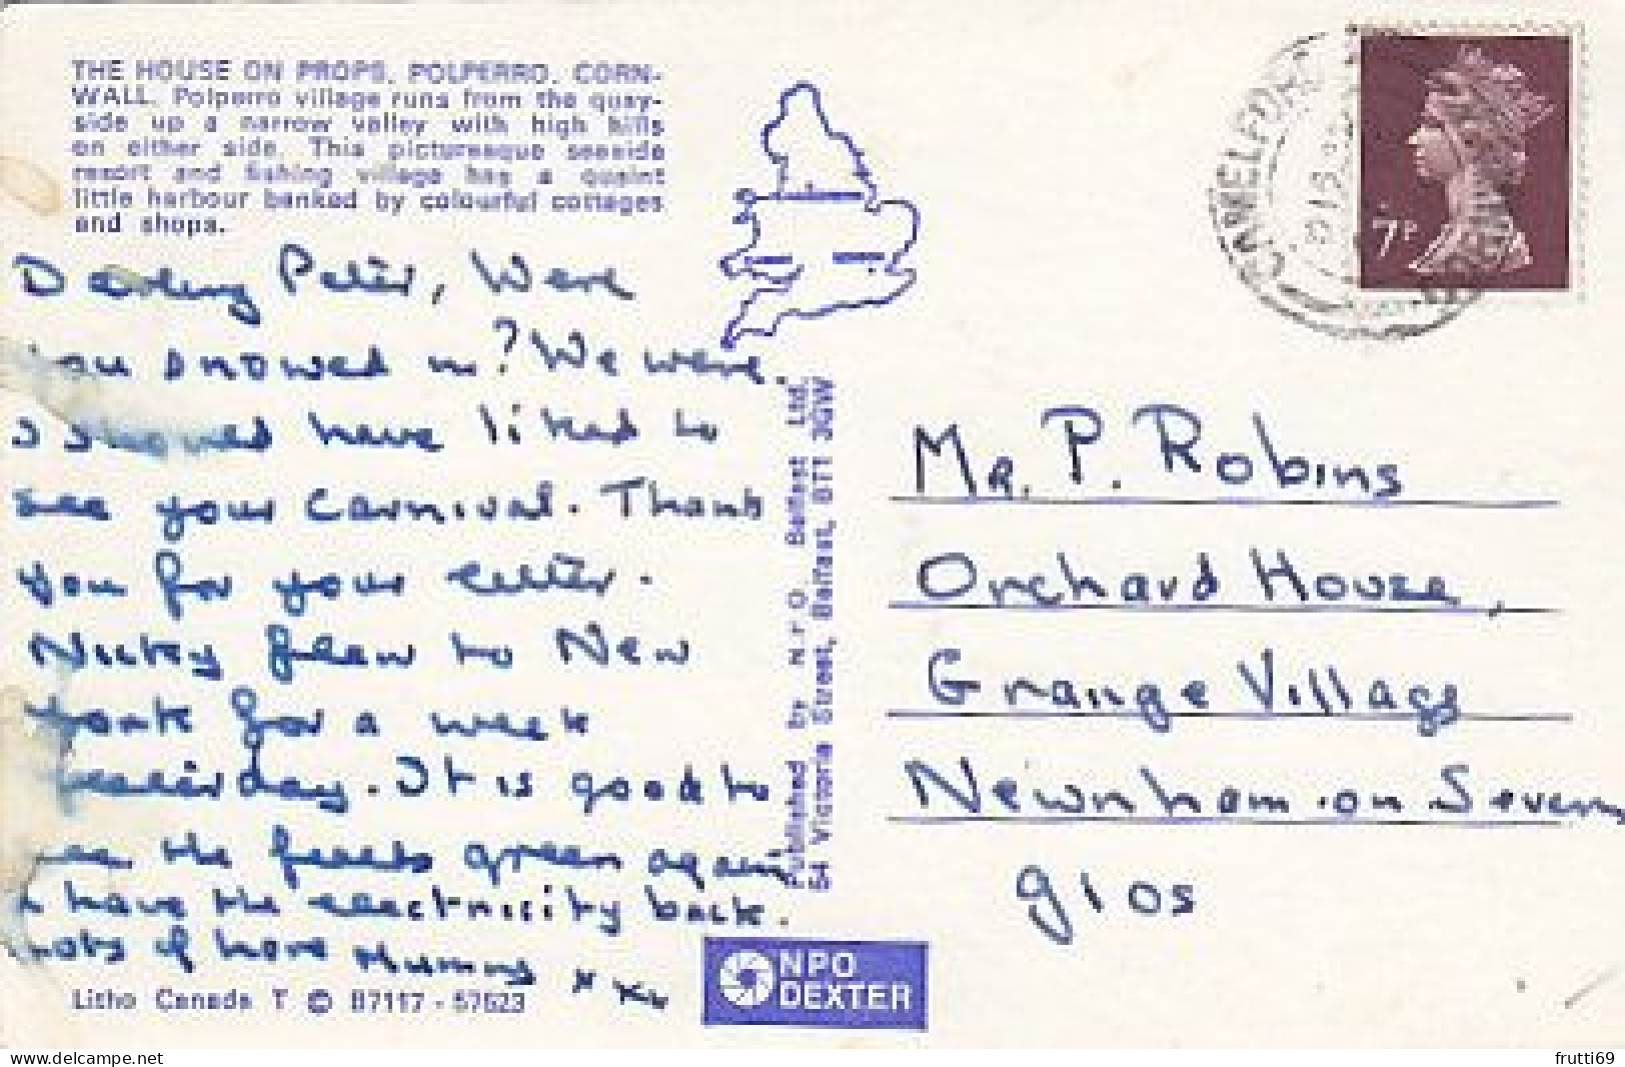 THE HOUSE ON PROPS. POLPERRO. CORN-
WALL. Polperro village runs from the quay-
side up a narrow valley with high hills
on either side. This picturesque seaside
resort and fishing village has a quaint
little harbour banked by colourful cottages
and shops.
Darling Peter, Were
you snowed in? We were.
I should have liked to
see your carnival. Thank
you for your letter.
Nicky flew to New
York for a week
yesterday. It is good to
see the fields green again
& have the electricity back.
Lots of love Mummy x x x
Litho Canada T © B7117 - 57623
Published by N.P.O. Belfast Ltd.
54 Victoria Street, Belfast, BT1 3GW
NPO
DEXTER
CAMELFORD
7P
Mr. P. Robins
Orchard House,
Grange Village
Newnham-on-Severn
glos
frutti69